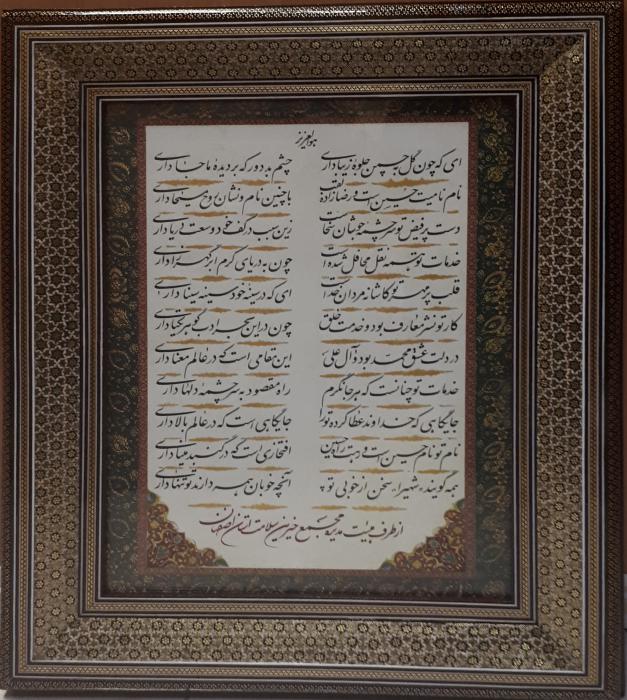 هوالعزیز
ای که چون گل به چمن جلوهٔ زیبا داری چشم بد دور که بر دیدهٔ ما جا داری
نام نامیت حسین است و رضازاده لقب با چنین نام و نشان روح مسیحا داری
دست پر فیض تو سرچشمه جوشان سخاست زین سبب در کف خود وسعت دریا داری
خدمات تو همه نقل محافل شده است چون به دریای کرم ابر گهرزا داری
قلب پر مهر تو کاشانه مردان خداست ای که در سینهٔ خود سینه سینا داری
کار تو نشر معارف بود و خدمت خلق چون در این بحر ادب گوهر یکتا داری
در دلت عشق محمد بود و آل علی این مقامی است که در عالم معنا داری
خدمات تو چنانست که هر جا نگرم راه مقصود به سرچشمهٔ دلها داری
جایگاهی که خداوند عطا کرده ترا جایگاهی است که در عالم بالا داری
نام تو نام حسین است و رهت راه حسین افتخاری است که در گنبد مینا داری
همه گویند، شهیرا، سخن از خوبی تو آنچه خوبان همه دارند تو تنها داری
از طرف هیئت مدیره مجمع خیرین سلامت استان اصفهان